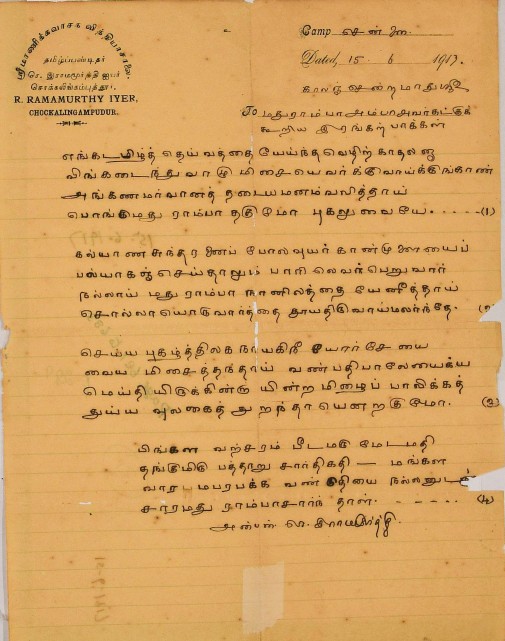 ஸ்ரீமாணிக்கவாசக வித்தியாசாலை
தமிழ்ப்பண்டிதர்
செ. இராமமூர்த்தி ஐயர்
சொக்கலிங்கம்புத்தூர்.
R. RAMAMURTHY IYER,
CHOCKALINGAMPUDUR.
Camp சென்னை
Dated, 15 6 1917.
காலஞ் சென்ற மாதுஸ்ரீ
To மதுராம்பா அம்பாஅவர்கட்குக்
கூறிய இரங்கற் பாக்கள்
எங்கடமிழ்த் தெய்வத்தை யேய்ந்தவெழிற் காதலனு
விங்கடைந்து வாழுமிசையெவர்க்கு வாய்க்குங்காண்
அங்கணமர்வானத் தடையமனம்வலித்தாய்
பொங்குமது ராம்பா தகுமோ புகலுவையே. (1)
கல்யாண சுந்தர னைப் போலுயர் காண்முளையைப்
பல்யாகஞ் செய்தாலும் பாரி லெவர்பெறுவார்
நல்லாய் மதுராம்பா நானிலத்தை யேனீத்தாய்
சொல்லாயொடுவார்த்தை தூயதிருவாய்மலர்ந்தே.
செய்ய புகழ்த்திலக நாயகிநீ யோர்சேயை
வைய மிசைத்தந்தாய் வண்பதிபாலேயைக்ய
மெய்தி யிருக்கின்டு யின்றமிழைப் பாலிக்கத்
துய்ய வுலகைத் துறந்தா யெனறகுமோ. (3)
பிங்கள வற்சரம் பீடமரு மேடமதி
தங்குமிரு பத்தாறு சார்திகதி — மங்கள
வாரடமபரபக்க வண்
சாரமது ராம்பாசார்ந் தாள். (4)
அன்பன்